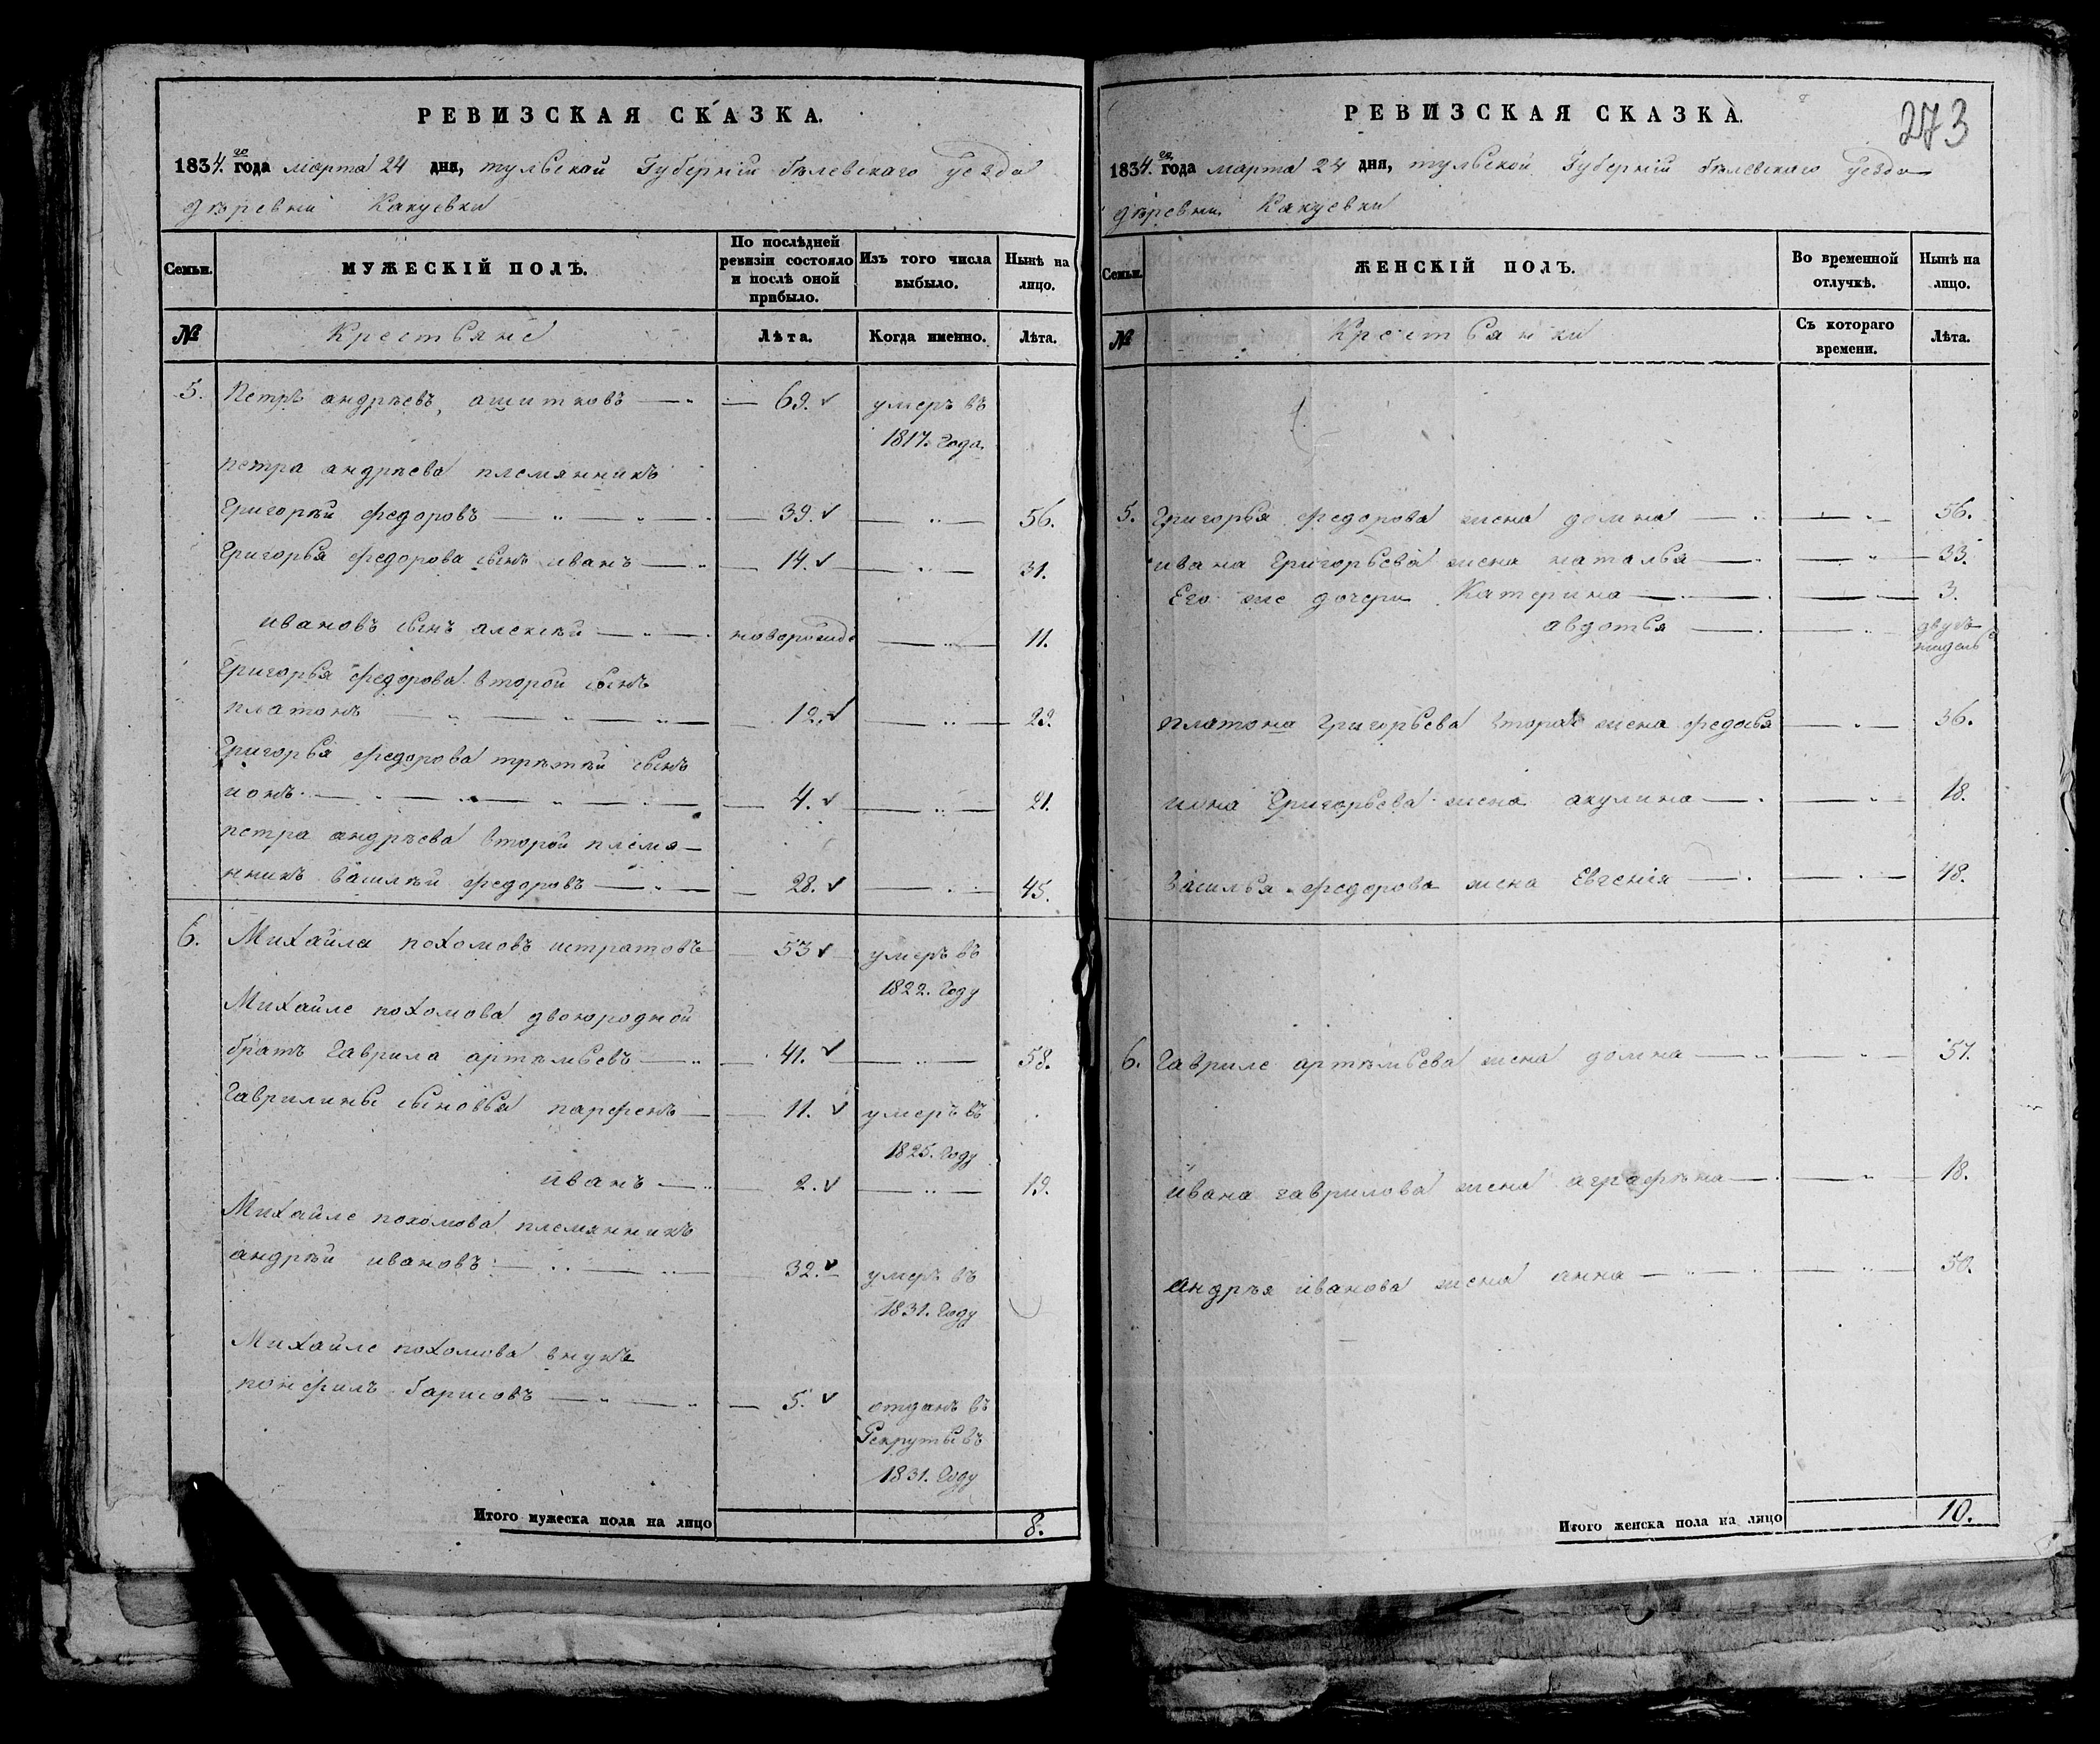 РЕВИЗСКАЯ СКАЗКА.
1834.го года марта 24 дня, тульской Губернiи бѣлевского уезда
дѣревни Какуевки
Семьи.
МУЖЕСКІЙ ПОЛЪ.
По послѣдней ревизіи состояло и послѣ оной прибыло.
Изъ того числа выбыло.
Нынѣ на лицо.
№
Крестьяне
Лѣта.
Когда именно.
Лѣта.
5. Петръ андрѣевъ, ашитковъ — 69. умеръ въ
1817. года.
петра андрѣева племянникъ
Григорѣй федоровъ — 39. — 56.
Григорья федорова сынъ иванъ — 14. — 31.
ивановъ сынъ алексѣй — новорожде — 11.
Григорья федорова второй сынъ
платонъ — 12. — 29.
Григорья федорова трѣтѣй сынъ
ионъ — 4. — 21.
петра андрѣева второй племя-
нникъ василѣй федоровъ — 28. — 45.
6. Михайла похомовъ истратовъ — 53 умеръ въ
1822. Году
Михайле похомова двоюродной
братъ Гаврила артѣмьевъ — 41. — 58.
Гаврилины сыновья парфенъ — 11. умеръ въ
1825. Году
иванъ — 2. — 19.
Михайле похомова племянникъ
андрѣй ивановъ — 32. умеръ въ
1831. Году
Михайле похомова внукъ
понфилъ барисовъ — 5. отданъ въ
Рекруты въ
1831. Году
Итого мужеска пола на лицо 8.
РЕВИЗСКАЯ СКАЗКА.
273
1834.го года марта 24 дня, тульской Губернiи бѣлевского уезда
дѣревни Какуевки
Семьи.
ЖЕНСКІЙ ПОЛЪ.
Во временной отлучкѣ.
Нынѣ на лицо.
№
Крестьянки
Съ котораго времени.
Лѣта.
5. Григорья федорова жена домна — 56.
ивана Григорьева жена наталья — 33.
Его же дочери Катерина — 3.
авдотья — двухъ
нидель
платона Григорьева вторая жена федосья — 36.
иона Григорьева жена акулина — 18.
василья федорова жена Евгенія — 48.
6. Гавриле артѣмьева жена домна — 57.
ивана гаврилова жена аграфѣна — 18.
андрѣя иванова жена анна — 50.
Итого женска пола на лицо 10.